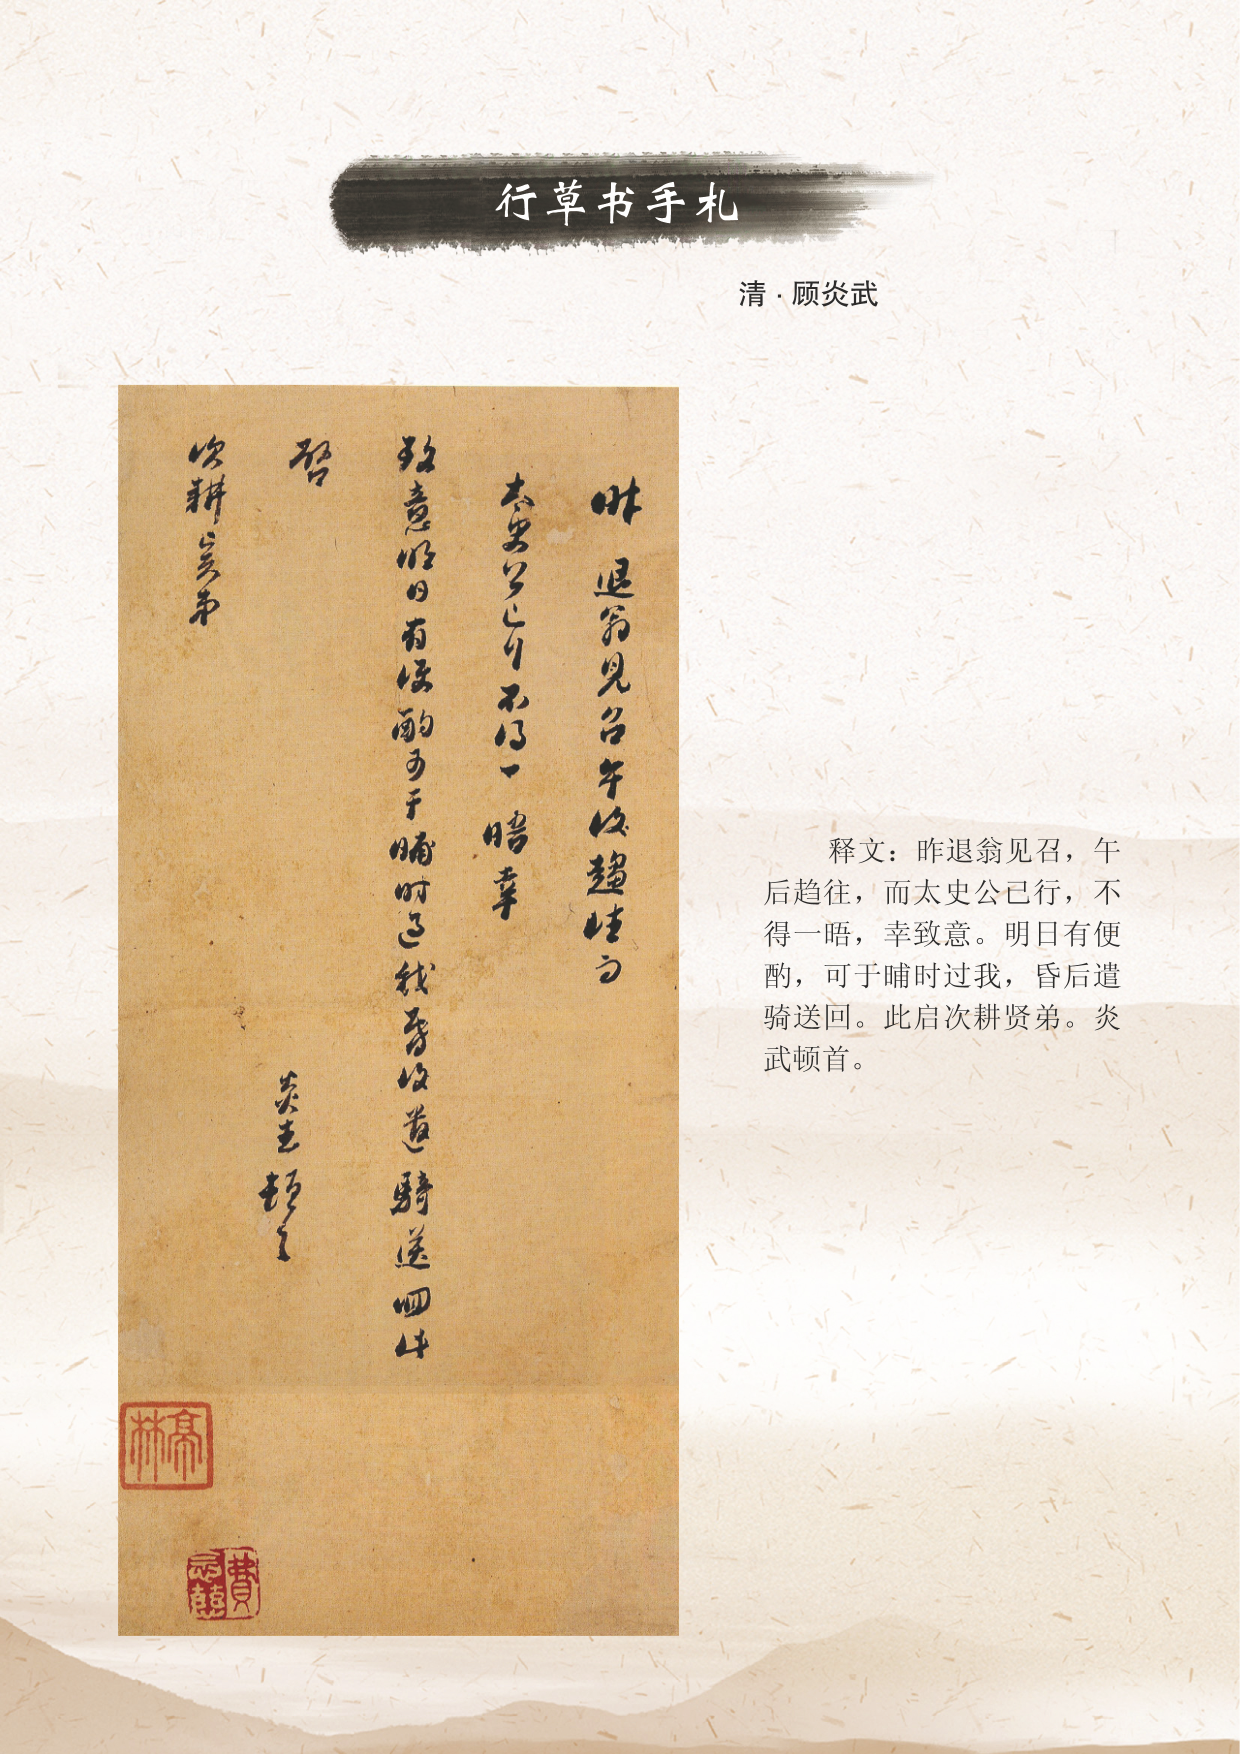 行草书手札
清·顾炎武
昨退翁見召午後趨往而
太史公已行不得一晤幸
致意明日有便酌可于晡时过我昏後遣騎送回此
啓
炎武頓首
次耕贤弟
亭林
費
释文：昨退翁见召，午
后趋往，而太史公已行，不
得一晤，幸致意。明日有便
酌，可于晡时过我，昏后遣
骑送回。此启次耕贤弟。炎
武顿首。